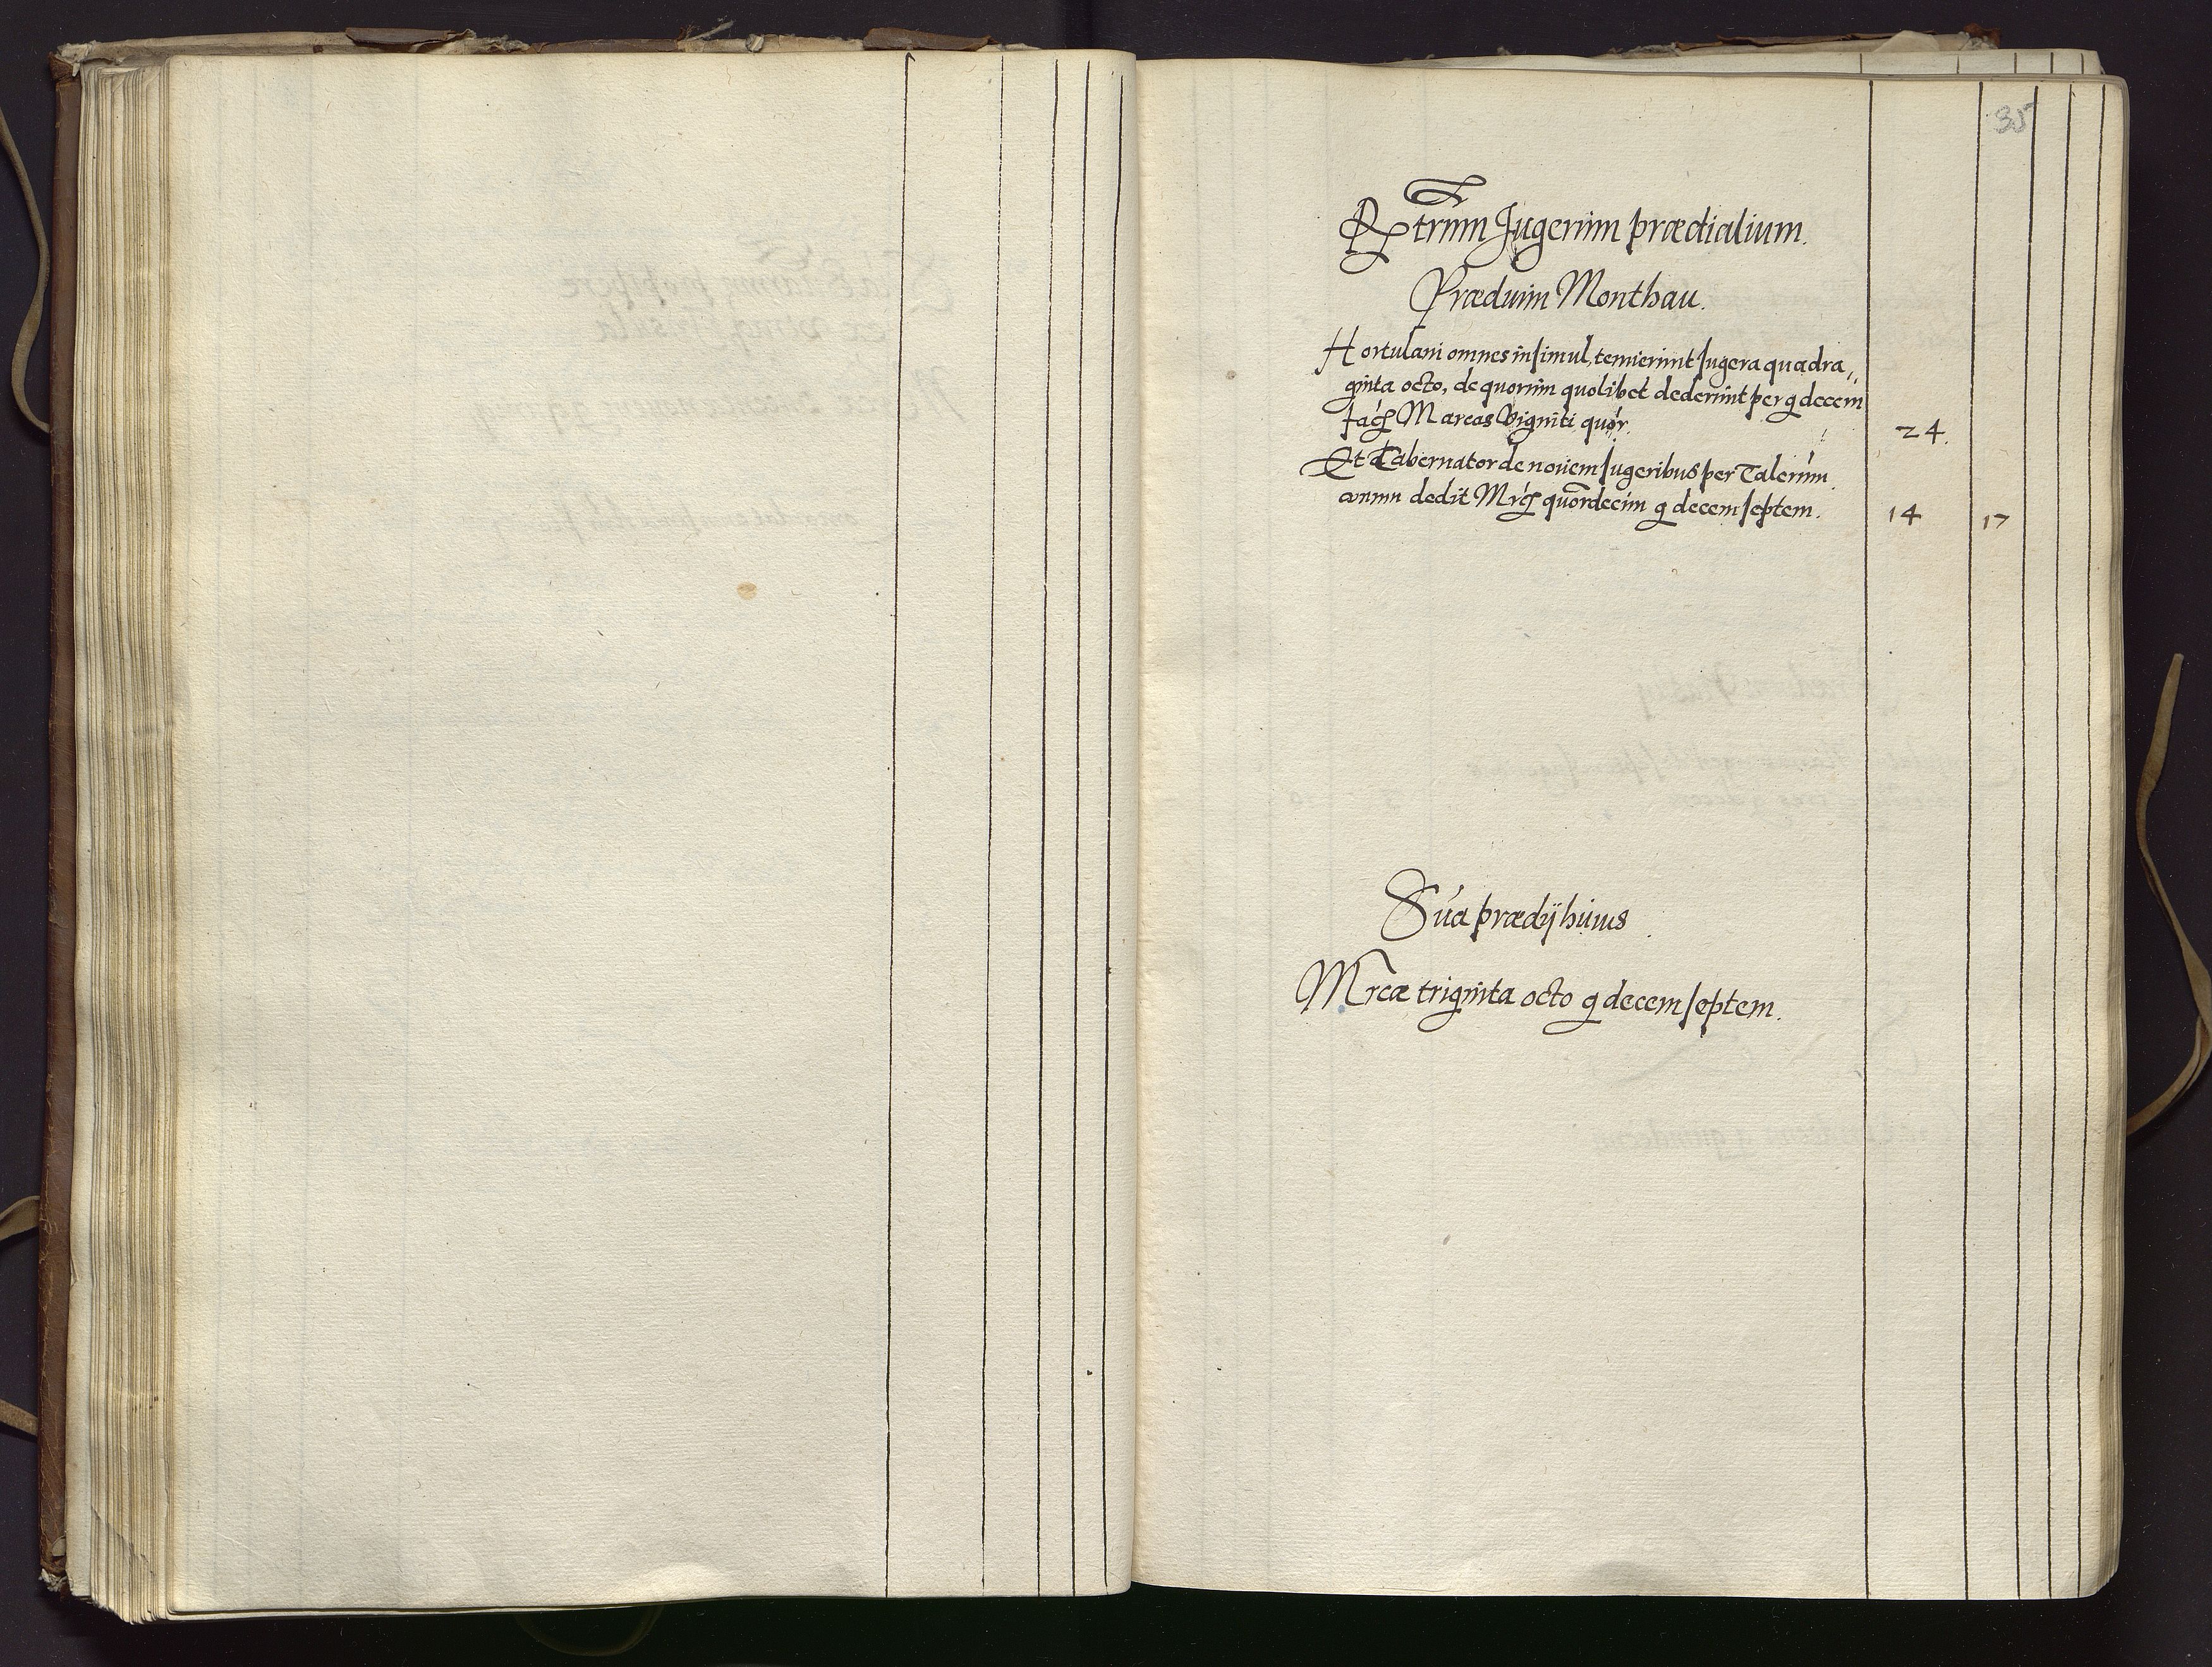 35
Jugerum prædialium.
Prædium Monthau.
Hortulani omnes insimul, tenuerunt Jugera quadra,,
ginta octo, de quorum quolibet dederunt per g decem
Marcas Viginti quor. 24.
Et Tabernator de novem Jugeribus per Talerum
unum dedit Mrcs quordecim g decem septem. 14 17
Sua prædij huius
Mrcæ triginta octo g decem septem.